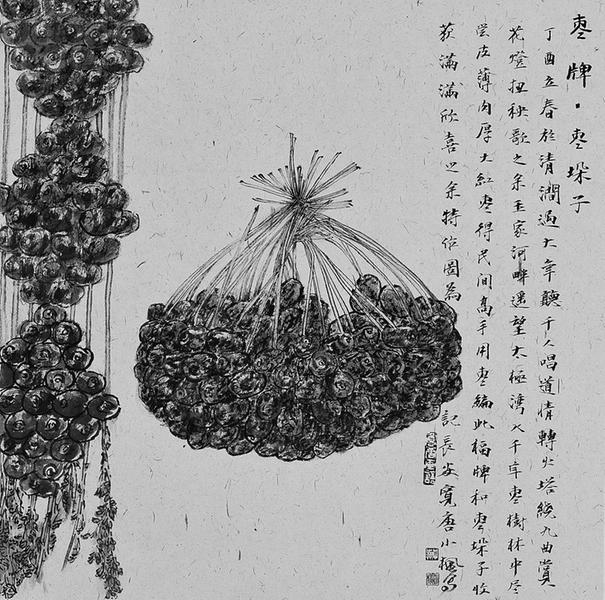 枣牌·枣垛子
丁酉立春於清澗過大年聽千人唱道情轉火塔繞九曲賞
花燈扭秧歌之余至家河畔遥望太極灣入千年枣樹林中尽
尝皮薄肉厚大红枣得民间高手用枣編此福牌和枣垛子收
获滿滿欣喜之余特作圖為
記長安寬唐小楓写